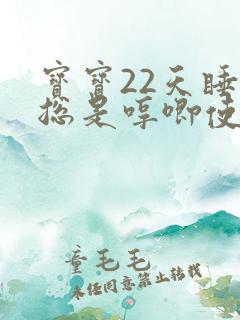 寳寳22天睡
总是哼唧使
童毛毛
未经同意禁止转载